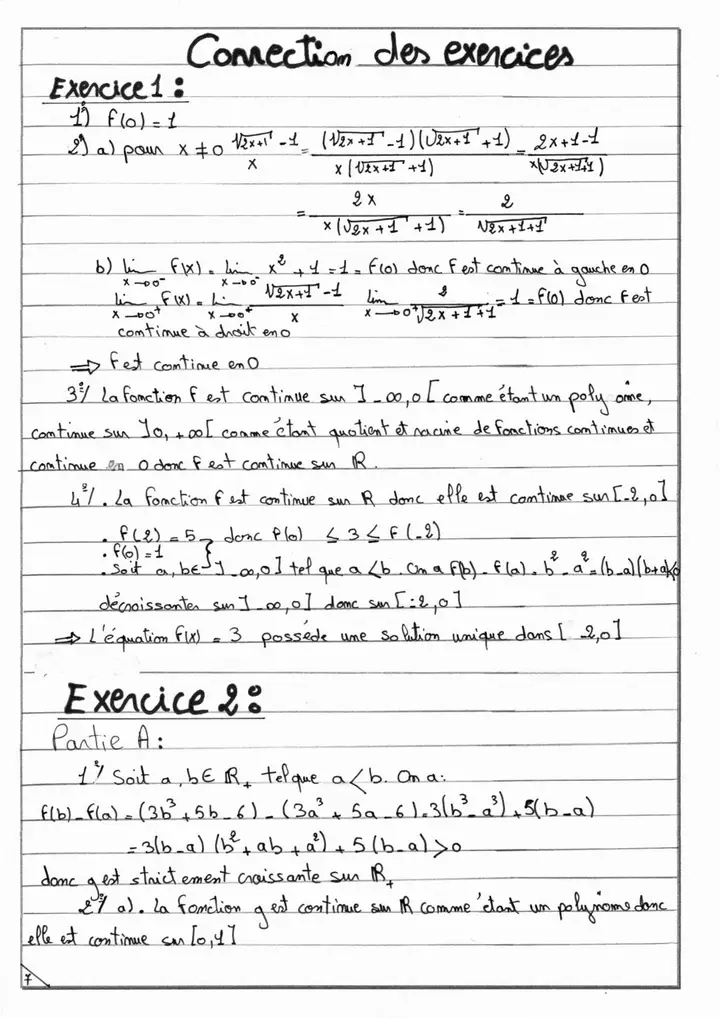 Correction des exercices
Exercice 1 :
1°) f(0) = 1
2°) a) pour x ≠ 0 (√2x+1 - 1)/x = ((√2x+1 - 1)(√2x+1 + 1))/(x(√2x+1 + 1)) = (2x+1-1)/(x(√2x+1+1))
= 2x/(x(√2x+1 + 1)) = 2/(√2x+1+1)
b) lim x→0⁻ f(x) = lim x→0⁻ x² + 1 = 1 = f(0) donc f est continue à gauche en 0
lim x→0⁺ f(x) = lim x→0⁺ (√2x+1 - 1)/x lim x→0⁺ 2/(√2x+1+1) = 1 = f(0) donc f est
continue à droit en 0
⇒ f est continue en 0
3°/ La fonction f est continue sur ]-∞,0[ comme étant un poly ome,
continue sur ]0,+∞[ comme étant quotient et racine de fonctions continues et
continue en 0 donc f est continue sur ℝ.
4°/. La fonction f est continue sur ℝ donc elle est continue sur [-2,0]
. f(2) = 5 } donc f(0) ≤ 3 ≤ f(-2)
. f(0) = 1
. Soit a, b ∈ ]-∞,0] tel que a < b. On a f(b) - f(a) = b² - a² = (b-a)(b+a)<0
décroissantes sur ]-∞,0] donc sur [-2,0]
⇒ L'équation f(x) = 3 possède une solution unique dans [-2,0]
Exercice 2 :
Partie A :
1°/ Soit a, b ∈ ℝ₊ tel que a < b. On a :
f(b) - f(a) = (3b³ + 5b - 6) - (3a³ + 5a - 6) = 3(b³ - a³) + 5(b - a)
= 3(b-a)(b² + ab + a²) + 5(b-a) > 0
donc g est strictement croissante sur ℝ₊
2°/ a). La fonction g est continue sur ℝ comme étant un polynôme donc
elle est continue sur [0,1]
7